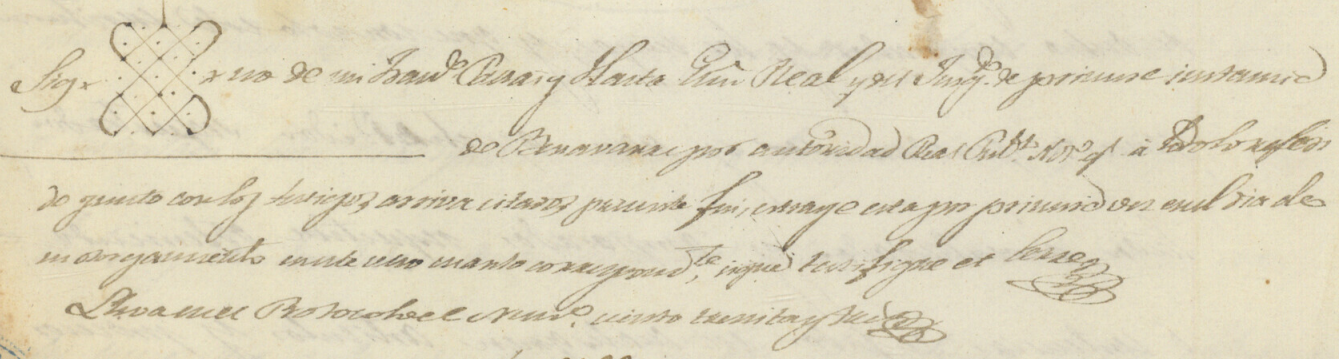 Sig no de mi Fran.co Casas y Esno Real y del Juzg.do de primera instancia
de Benavarre por autoridad Real Not.o q.e à Todo lo referi
do junto con los testigos arriva citados presente fui, estraye esta por primera vez en el dia de
su otorgamiento en este sello cuarto correspond.te, in que testifique et cerre
Llevase el Protocolo el Num.o ciento treinta y tres